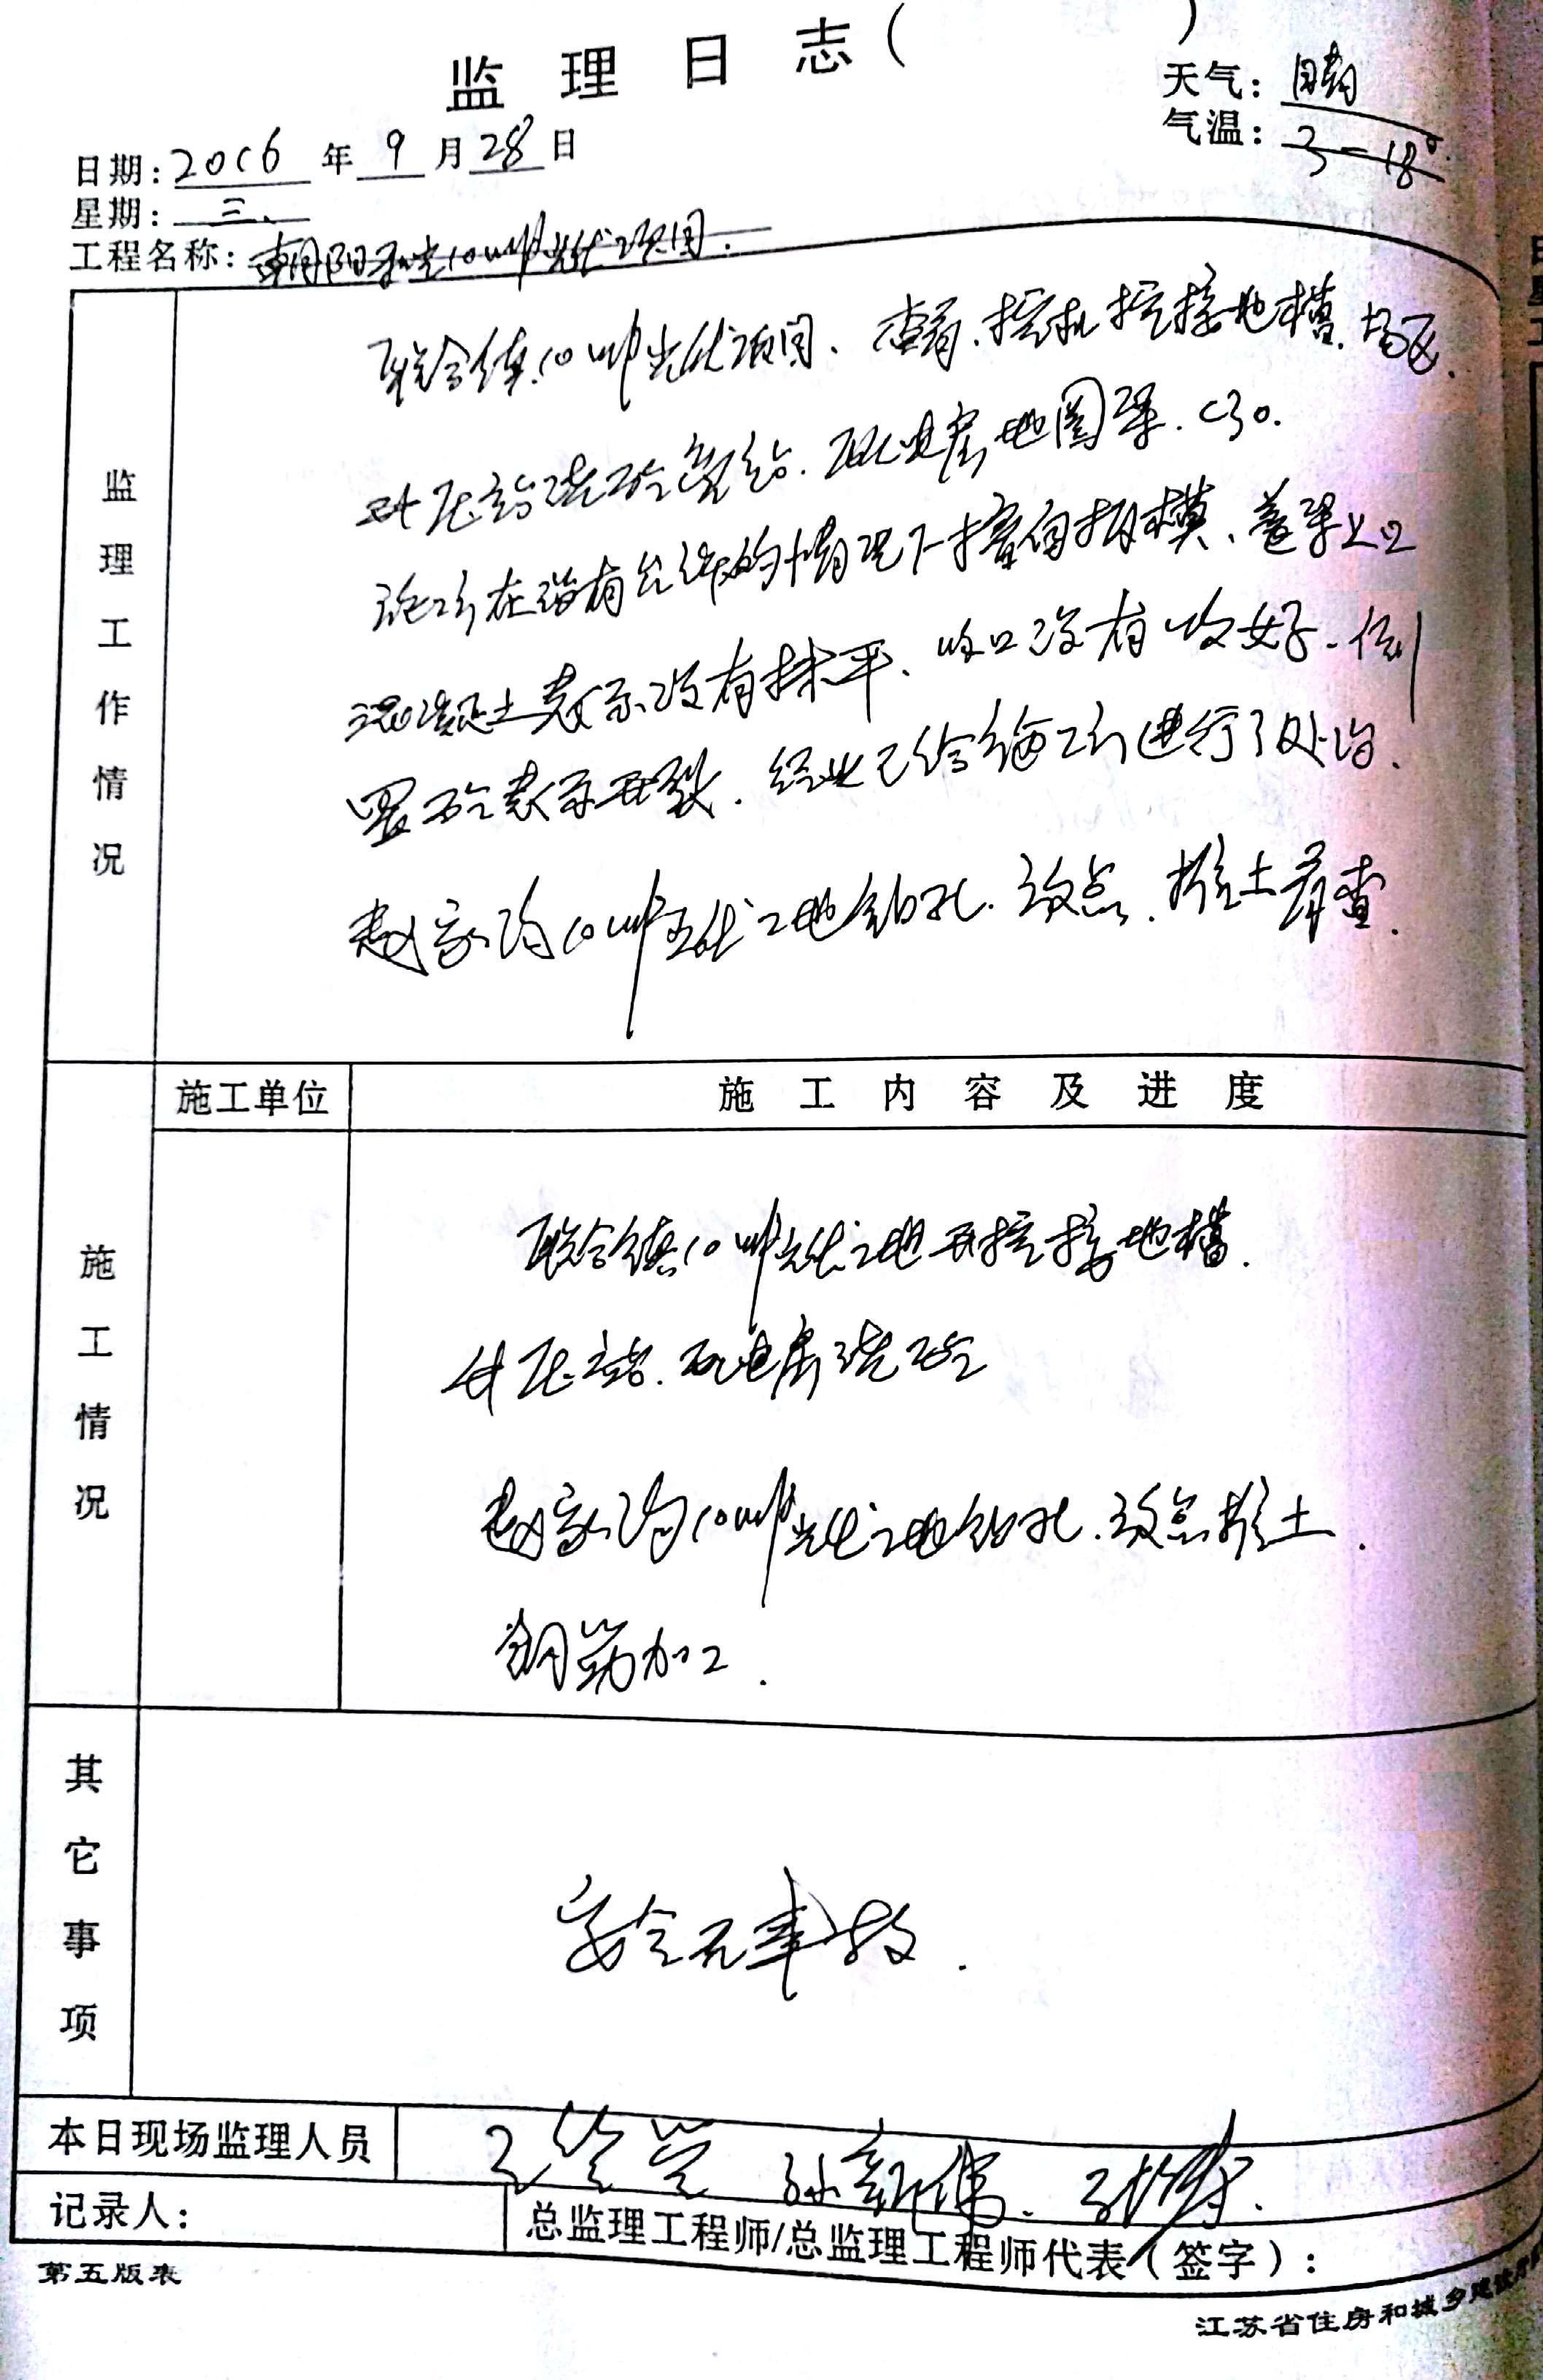 监理日志（　　　）
天气：晴
气温：3-18°
日期：2016年9月28日
星期：三、
工程名称：朝阳 10MWP光伏项目.
监理工作情况
联合镇10MWP光伏项目、查看、挖机挖接地槽、场区.
升压站浇砼 配电房地圈梁. C30.
施工方在没有允许的情况下擅自拆模、梁上口
混凝土表示没有抹平、收口没有收好、
置砼表示开裂. 已给施工方进行了处治.
赵家沟10MWP光伏工地钻孔. 放点、推土 查.
施工情况
施工单位
施工内容及进度
联合镇10MWP光伏工地开挖接地槽.
升压站.配电房浇砼
赵家沟10MWP光伏工地钻孔.放点推土.
钢筋加工.
其它事项
安全无事故.
本日现场监理人员
孙新伟.
记录人：
总监理工程师/总监理工程师代表（签字）：
第五版表
江苏省住房和城乡建设厅